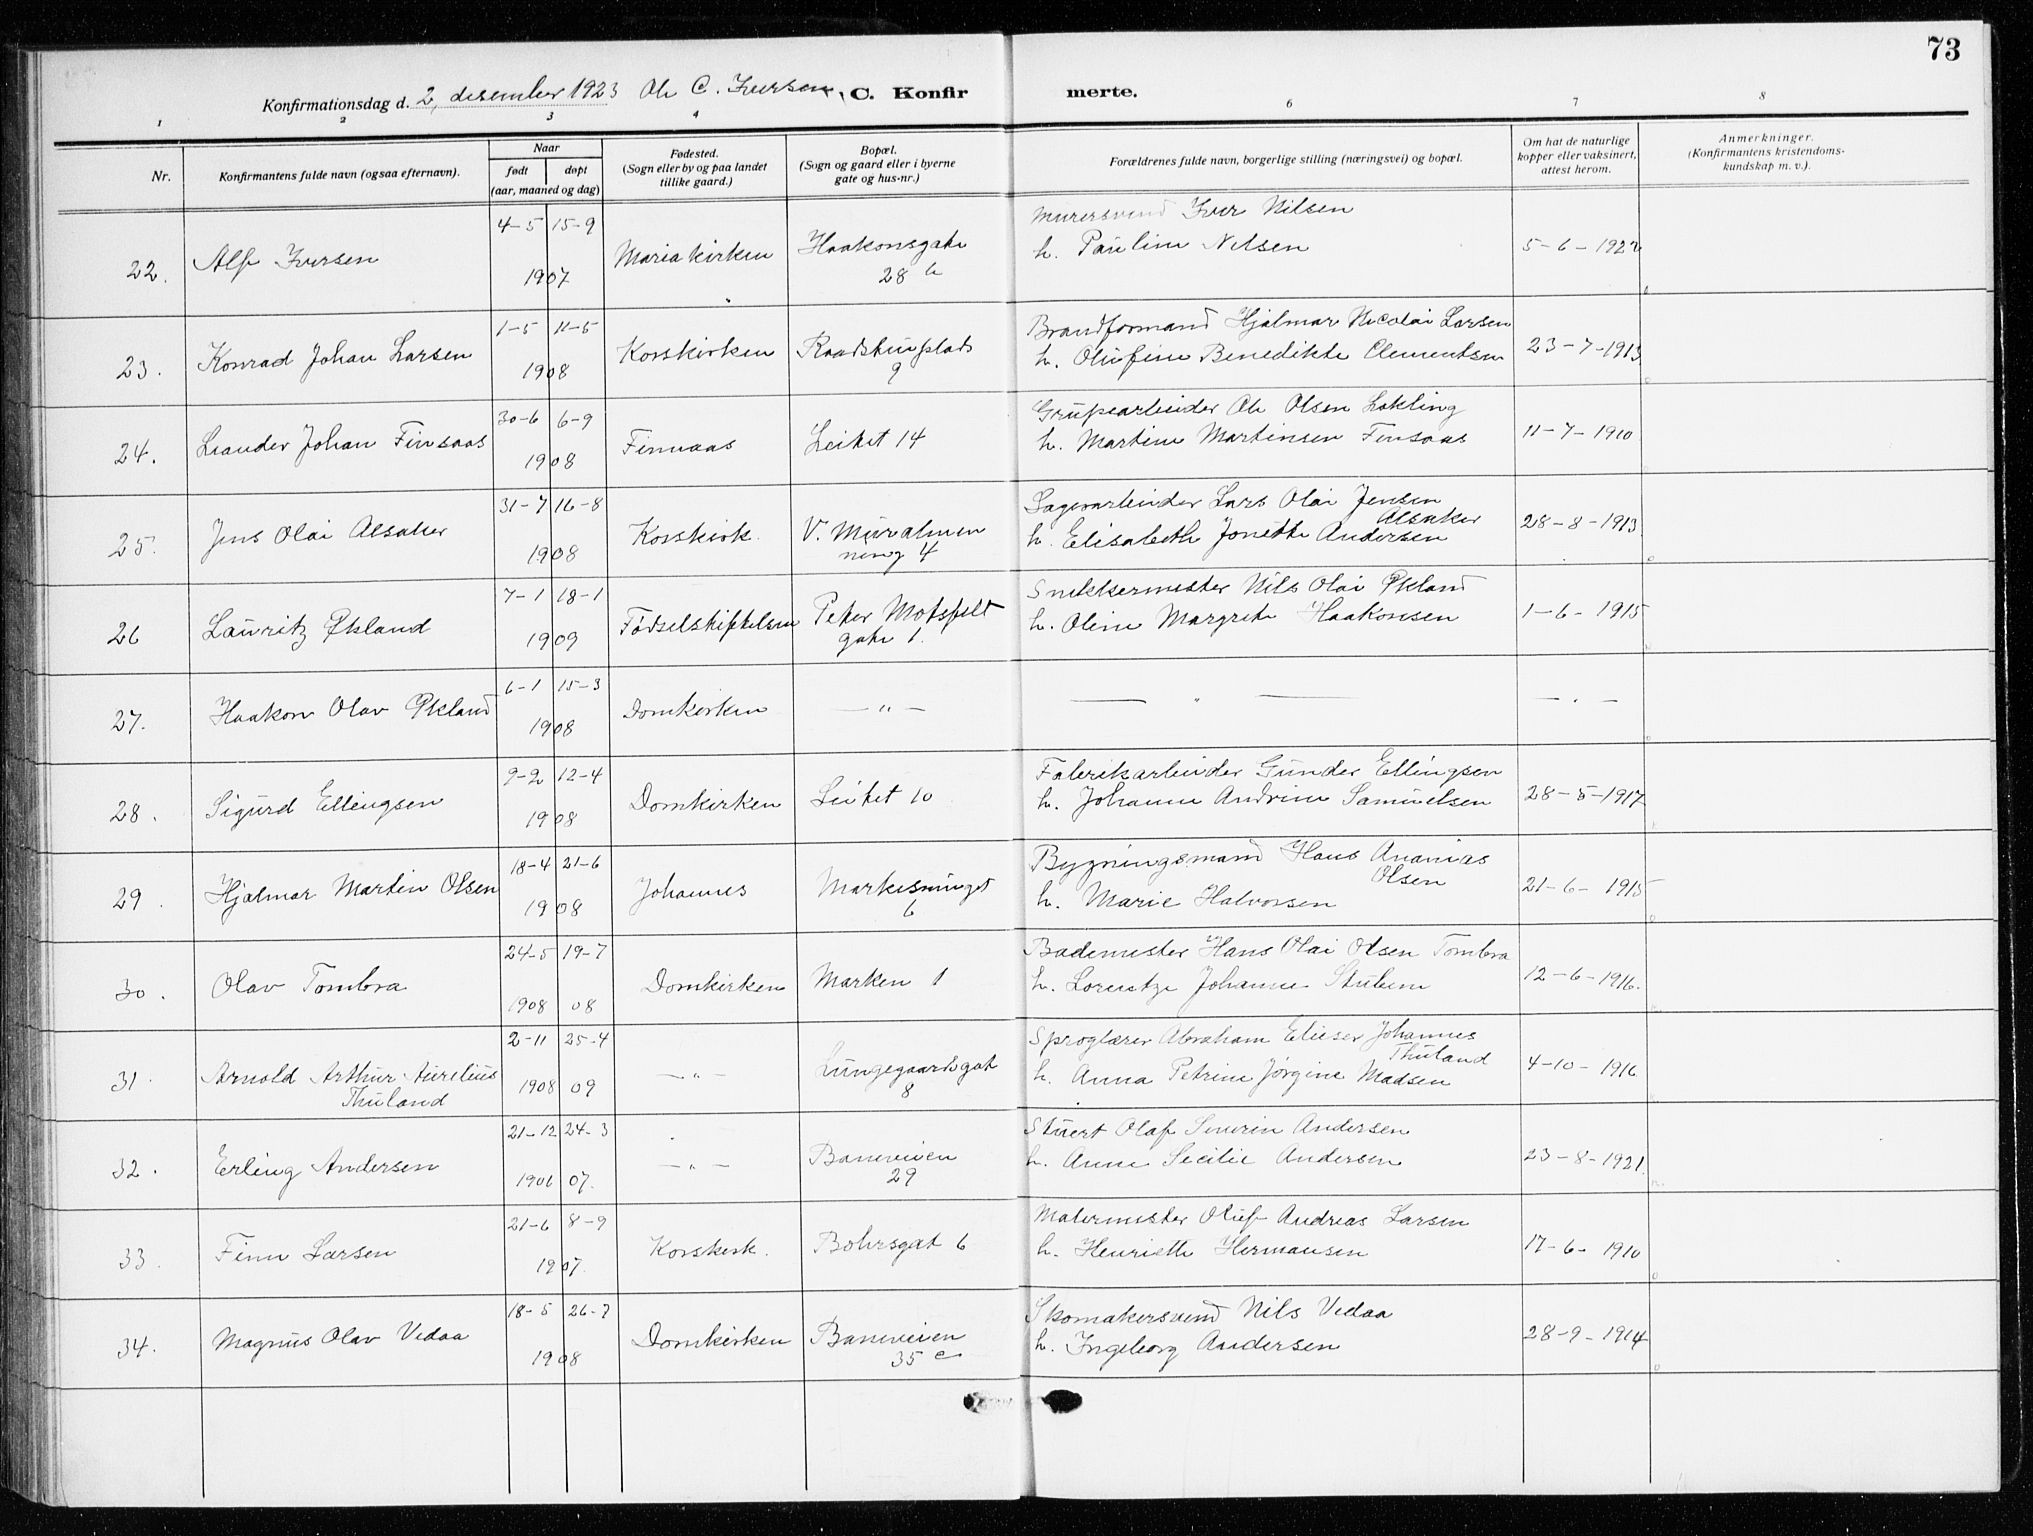 73
Konfirmationsdag d. 2, desember 1923 Ole C. Iversen, C. Konfirmerte.
1 2 3 4 6 7 8
Nr.
Konfirmantens fulde navn (ogsaa efternavn).
Naar
født døpt
(aar, maaned og dag)
Fødested.
(Sogn eller by og paa landet
tillike gaard.)
Bopæl.
(Sogn og gaard eller i byerne
gate og hus-nr.)
Forældrenes fulde navn, borgerlige stilling (næringsvei) og bopæl.
Om hat de naturlige
kopper eller vaksinert,
attest herom.
Anmerkninger.
(Konfirmantens kristendoms-
kundskap m. v.).
22. Alf Iversen 4-5 15-9 1907 Mariakirken Haakonsgate 28 b
Murersvend Iver Nilsen
h. Pauline Nilsen 5-6-1922
23. Konrad Johan Larsen 1-5 11-5 1908 Korskirken Raadstuplads 9
Brandformand Hjalmar Nicolai Larsen
h. Olufine Benedikte Clementsen 23-7-1913
24. Leander Johan Finsaas 30-6 6-9 1908 Finnaas Leitet 14
Grubearbeider Ole Olsen Løkling
h. Martine Martinsen Finsaas 11-7-1910
25. Jens Olai Alsaker 31-7 16-8 1908 Korskirk. V. Muralmen
ning 4
Sagarbeider Lars Olai Jensen
Alsaker
h. Elisabeth Jonette Andersen 28-8-1913
26 Lauritz Økland 7-1 18-1 1909 Fødselstiftelsen Peter Motzfelt
gate 1.
Snekkermester Nils Olai Økland
h. Oline Margrete Haakonsen 1-6-1915
27. Haakon Olav Økland 6-1 15-3 1908 Domkirken — " —
— " — — " —
28. Sigurd Ellingsen 9-2 12-4 1908 Domkirken Leitet 10
Fabrikarbeider Gunder Ellingsen
h. Johanne Andrine Samuelsen 28-5-1917
29. Hjalmar Martin Olsen 18-4 21-6 1908 Johannes Markesmuget
6
Bygningsmand Hans Ananias
Olsen
h. Marie Halvorsen 21-6-1915
30. Olav Tombra 24-5 19-7 1908 08 Domkirken Marken 1
Bademester Hans Olai Olsen Tombra
h. Lorentze Johanne Stubem 12-6-1916.
31. Arnold Arthur Aurelius
Thuland 2-11 25-4 1908 09 — " — Lungegaardsgat
8
Sproglærer Abraham Elieser Johannes
Thuland
h. Anna Petrine Jørgine Madsen 4-10-1916
32. Erling Andersen 21-12 24-3 1906 07. — " — Baneveien
29
Stuert Olaf Severin Andersen
h. Anne Secilie Andersen 23-8-1921.
33. Finn Larsen 21-6 8-9 1907. Korskirk. Bohrsgat 6
Malermester Oluf Andreas Larsen
h. Henriette Hermansen 17-6-1910
34. Magnus Olav Vedaa 18-5 26-7 1908 Domkirken Baneveien
35 c
Skomakersvend Nils Vedaa
h. Ingeborg Andersen 28-9-1914